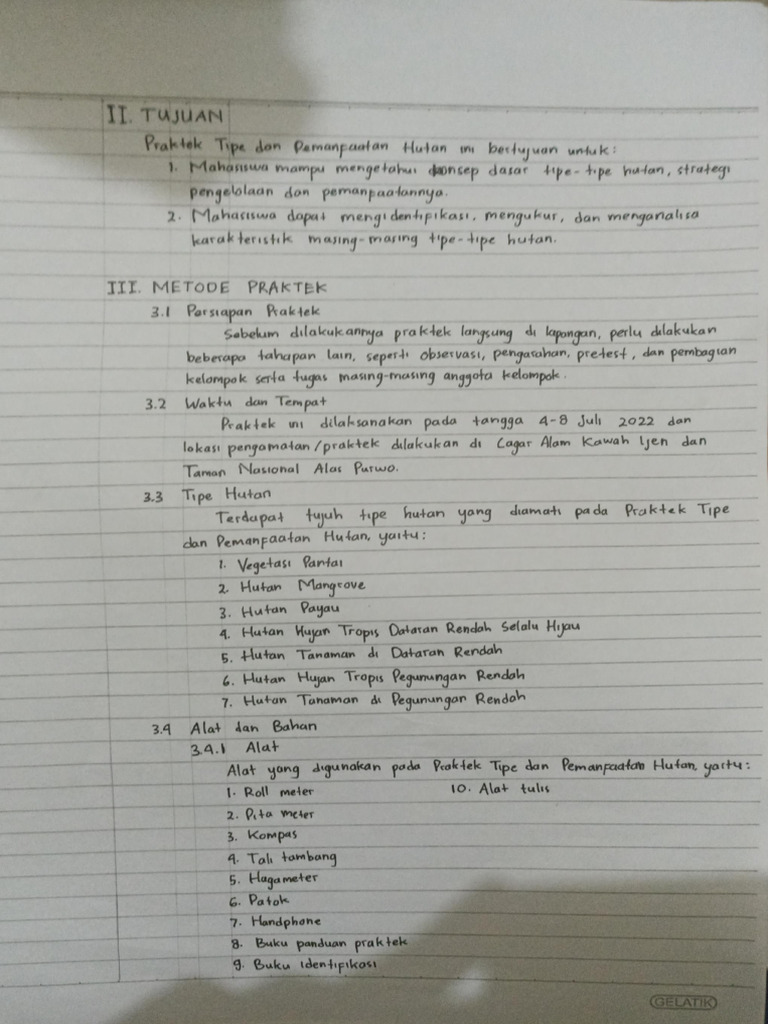 II. TUJUAN
Praktek Tipe dan Pemanfaatan Hutan ini bertujuan untuk:
1. Mahasiswa mampu mengetahui konsep dasar tipe-tipe hutan, strategi
pengelolaan dan pemanfaatannya.
2. Mahasiswa dapat mengidentifikasi, mengukur, dan menganalisa
karakteristik masing-masing tipe-tipe hutan.
III. METODE PRAKTEK
3.1 Persiapan Praktek
Sebelum dilakukannya praktek langsung di lapongan, perlu dilakukan
beberapa tahapan lain, seperti observasi, pengasahan, pretest, dan pembagian
kelompok serta tugas masing-masing anggota kelompok.
3.2 Waktu dan Tempat
Praktek ini dilaksanakan pada tangga 4-8 Juli 2022 dan
lokasi pengamatan/praktek dilakukan di Cagar Alam Kawah Ijen dan
Taman Nasional Alas Purwo.
3.3 Tipe Hutan
Terdapat tujuh tipe hutan yang diamati pada Praktek Tipe
dan Pemanfaatan Hutan, yaitu:
1. Vegetasi Pantai
2. Hutan Mangrove
3. Hutan Payau
4. Hutan Hujan Tropis Dataran Rendah Selalu Hijau
5. Hutan Tanaman di Dataran Rendah
6. Hutan Hujan Tropis Pegunungan Rendah
7. Hutan Tanaman di Pegunungan Rendah
3.4 Alat dan Bahan
3.4.1 Alat
Alat yang digunakan pada Praktek Tipe dan Pemanfaatan Hutan, yaitu:
1. Roll meter
2. Pita meter
3. Kompas
4. Tali tambang
5. Hagameter
6. Patok
7. Handphone
8. Buku panduan praktek
9. Buku identifikasi
10. Alat tulis
GELATIK